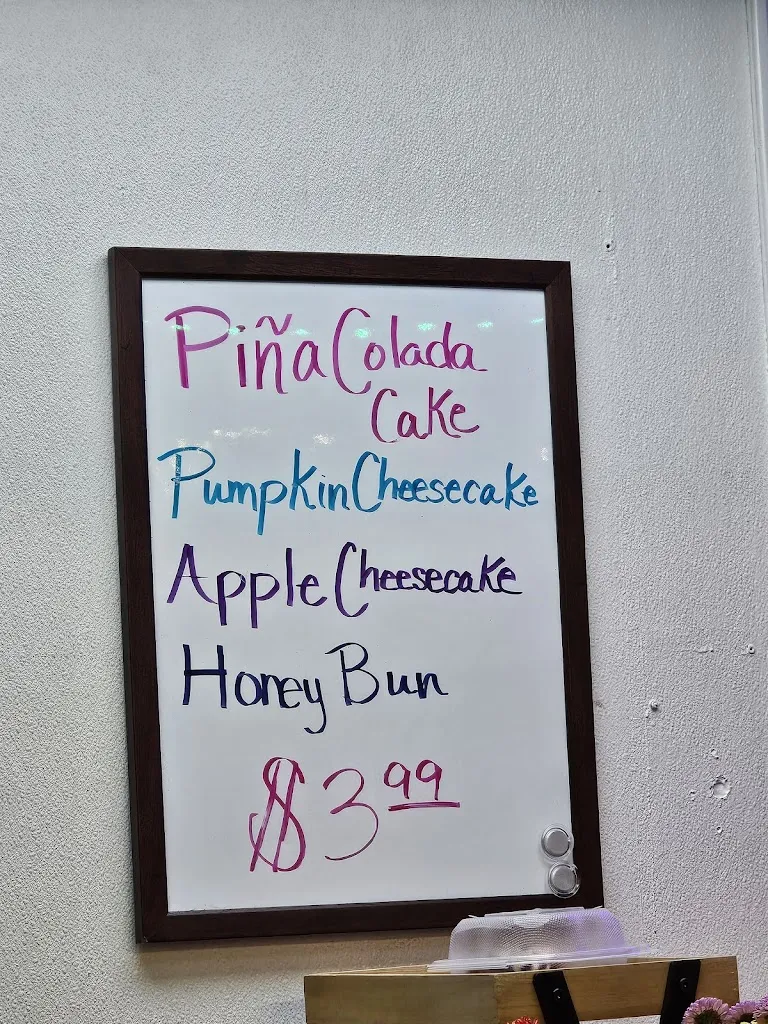 Piña Colada
Cake
Pumpkin Cheesecake
Apple Cheesecake
Honey Bun
$3.99